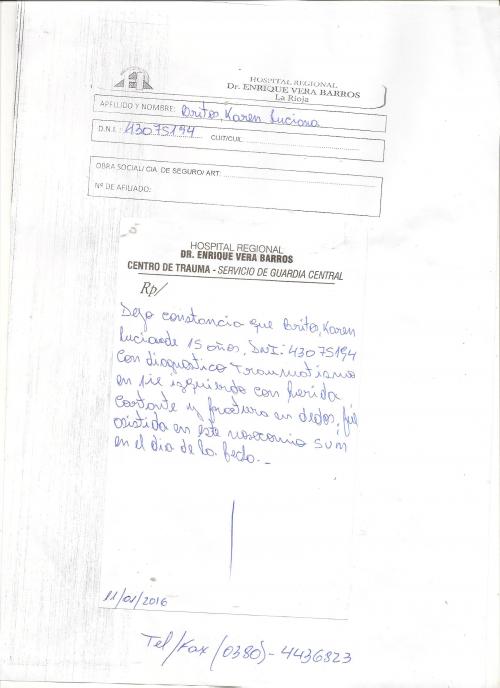 HOSPITAL REGIONAL
Dr. ENRIQUE VERA BARROS
La Rioja
APELLIDO Y NOMBRE: Britos, Karen Luciana
D.N.I.: 43075194 CUIT/CUIL:
OBRA SOCIAL/ CIA. DE SEGURO/ ART:
Nº DE AFILIADO:
HOSPITAL REGIONAL
DR. ENRIQUE VERA BARROS
CENTRO DE TRAUMA - SERVICIO DE GUARDIA CENTRAL
Rp/
Dejo constancia que Britos, Karen
Lucia de 15 años, DNI: 43075194
con diagnostico Traumatismo
en pie izquierdo con herida
cortante y fractura en dedos, fue
asistida en este nosocomio SUM
en el dia de la fecha.-
11/01/2016
Tel/Fax (0380)-4436823